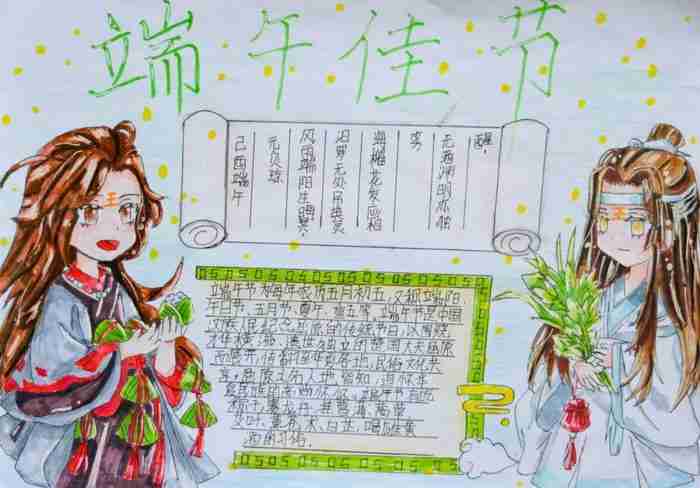 端午佳节
己酉端午
元贝琼
风雨端阳生晦冥
汨罗无处吊英灵
海榴花发应相
笑
无酒渊明亦独
醒。
端午节为每年农历五月初五,又称端阳、
午日节、五月节、重午、重五等,端午节是中国
汉族人民纪念屈原的传统节日,以围绕
才华横溢、遗世独立的楚国大夫屈原
而展开,传播至华夏各地,民俗文化共
享,屈原之名人 皆知,追怀华
夏民族的高洁情怀。端午节有吃
粽子,赛龙舟,挂菖蒲、蒿草、
艾叶,薰苍术、白芷,喝雄黄
酒的习俗。